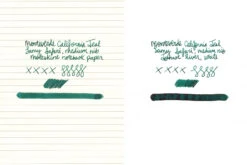 Monteverde California Teal
Lamy Safari, medium nib
Moleskine notebook paper
xxxx
Monteverde California Teal
Lamy Safari, medium nib
white
xxxx